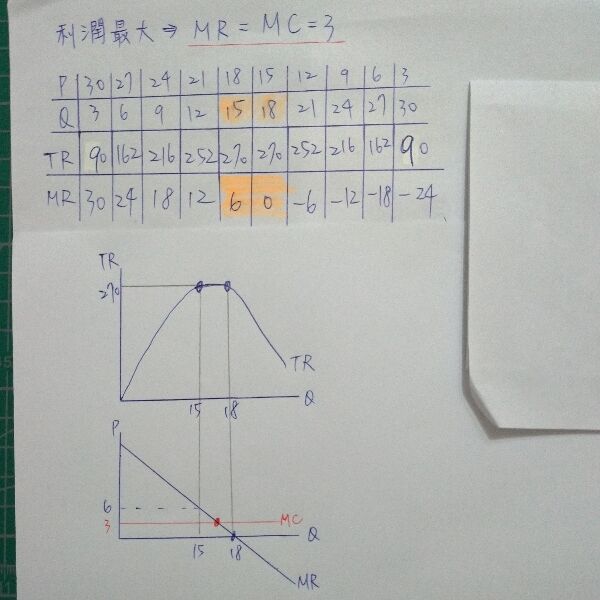 利潤最大⇒ MR = MC = 3
P 30 27 24 21 18 15 12 9 6 3
Q 3 6 9 12 15 18 21 24 27 30
TR 90 162 216 252 270 270 252 216 162 90
MR 30 24 18 12 6 0 -6 -12 -18 -24
TR
270
TR
15 18 Q
P
6
3 MC
15 18 Q
MR